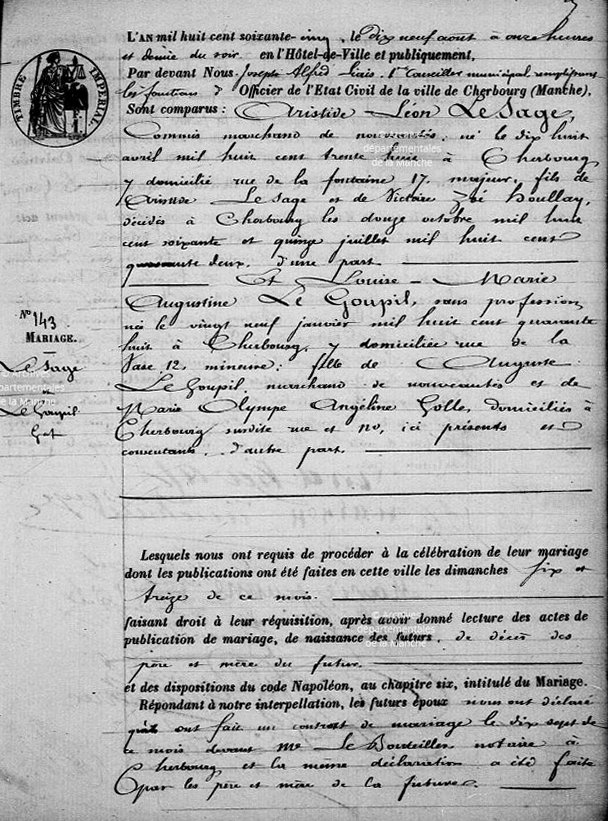 TIMBRE IMPERIAL.
L'AN mil huit cent soixante-cinq, le dix neuf août à onze heures
et demie du soir, en l'Hôtel-de-Ville et publiquement,
Par devant Nous, Joseph Alfred Liais, 1er Conseiller municipal remplissant
les fonctions d'Officier de l'Etat Civil de la ville de Cherbourg (Manche),
Sont comparus : Aristide Léon Le Sage,
Commis marchand de nouveautés, né le dix huit
avril mil huit cent trente huit à Cherbourg
y domicilié rue de la fontaine 17, majeur, fils de
Aristide Le Sage et de Victoire Zoé Houllay,
décédés à Cherbourg les douze octobre mil huit
cent soixante et quinze juillet mil huit cent
quarante deux, d'une part
Et Louise-Marie
Augustine Le Goupil, sans profession,
née le vingt neuf janvier mil huit cent quarante
huit à Cherbourg, y domiciliée rue de la
Vase 12, mineure; fille de Auguste
Le Goupil, marchand de nouveautés et de
Marie Olympe Angéline Golle, domiciliés à
Cherbourg susdite rue et no, ici présents et
consentants, d'autre part.
No 143
MARIAGE.
Le Sage
et
Le Goupil
Lesquels nous ont requis de procéder à la célébration de leur mariage
dont les publications ont été faites en cette ville les dimanches six et
treize de ce mois.
faisant droit à leur réquisition, après avoir donné lecture des actes de
publication de mariage, de naissance des futurs, de décès des
père et mère du futur.
et des dispositions du code Napoléon, au chapitre six, intitulé du Mariage.
Répondant à notre interpellation, les futurs époux nous ont déclaré
qu'ils ont fait un contrat de mariage le dix sept de
ce mois devant Me Le Bouteiller notaire à
Cherbourg et la même déclaration a été faite
par les père et mère de la future.
© Archives
départementales
de la Manche